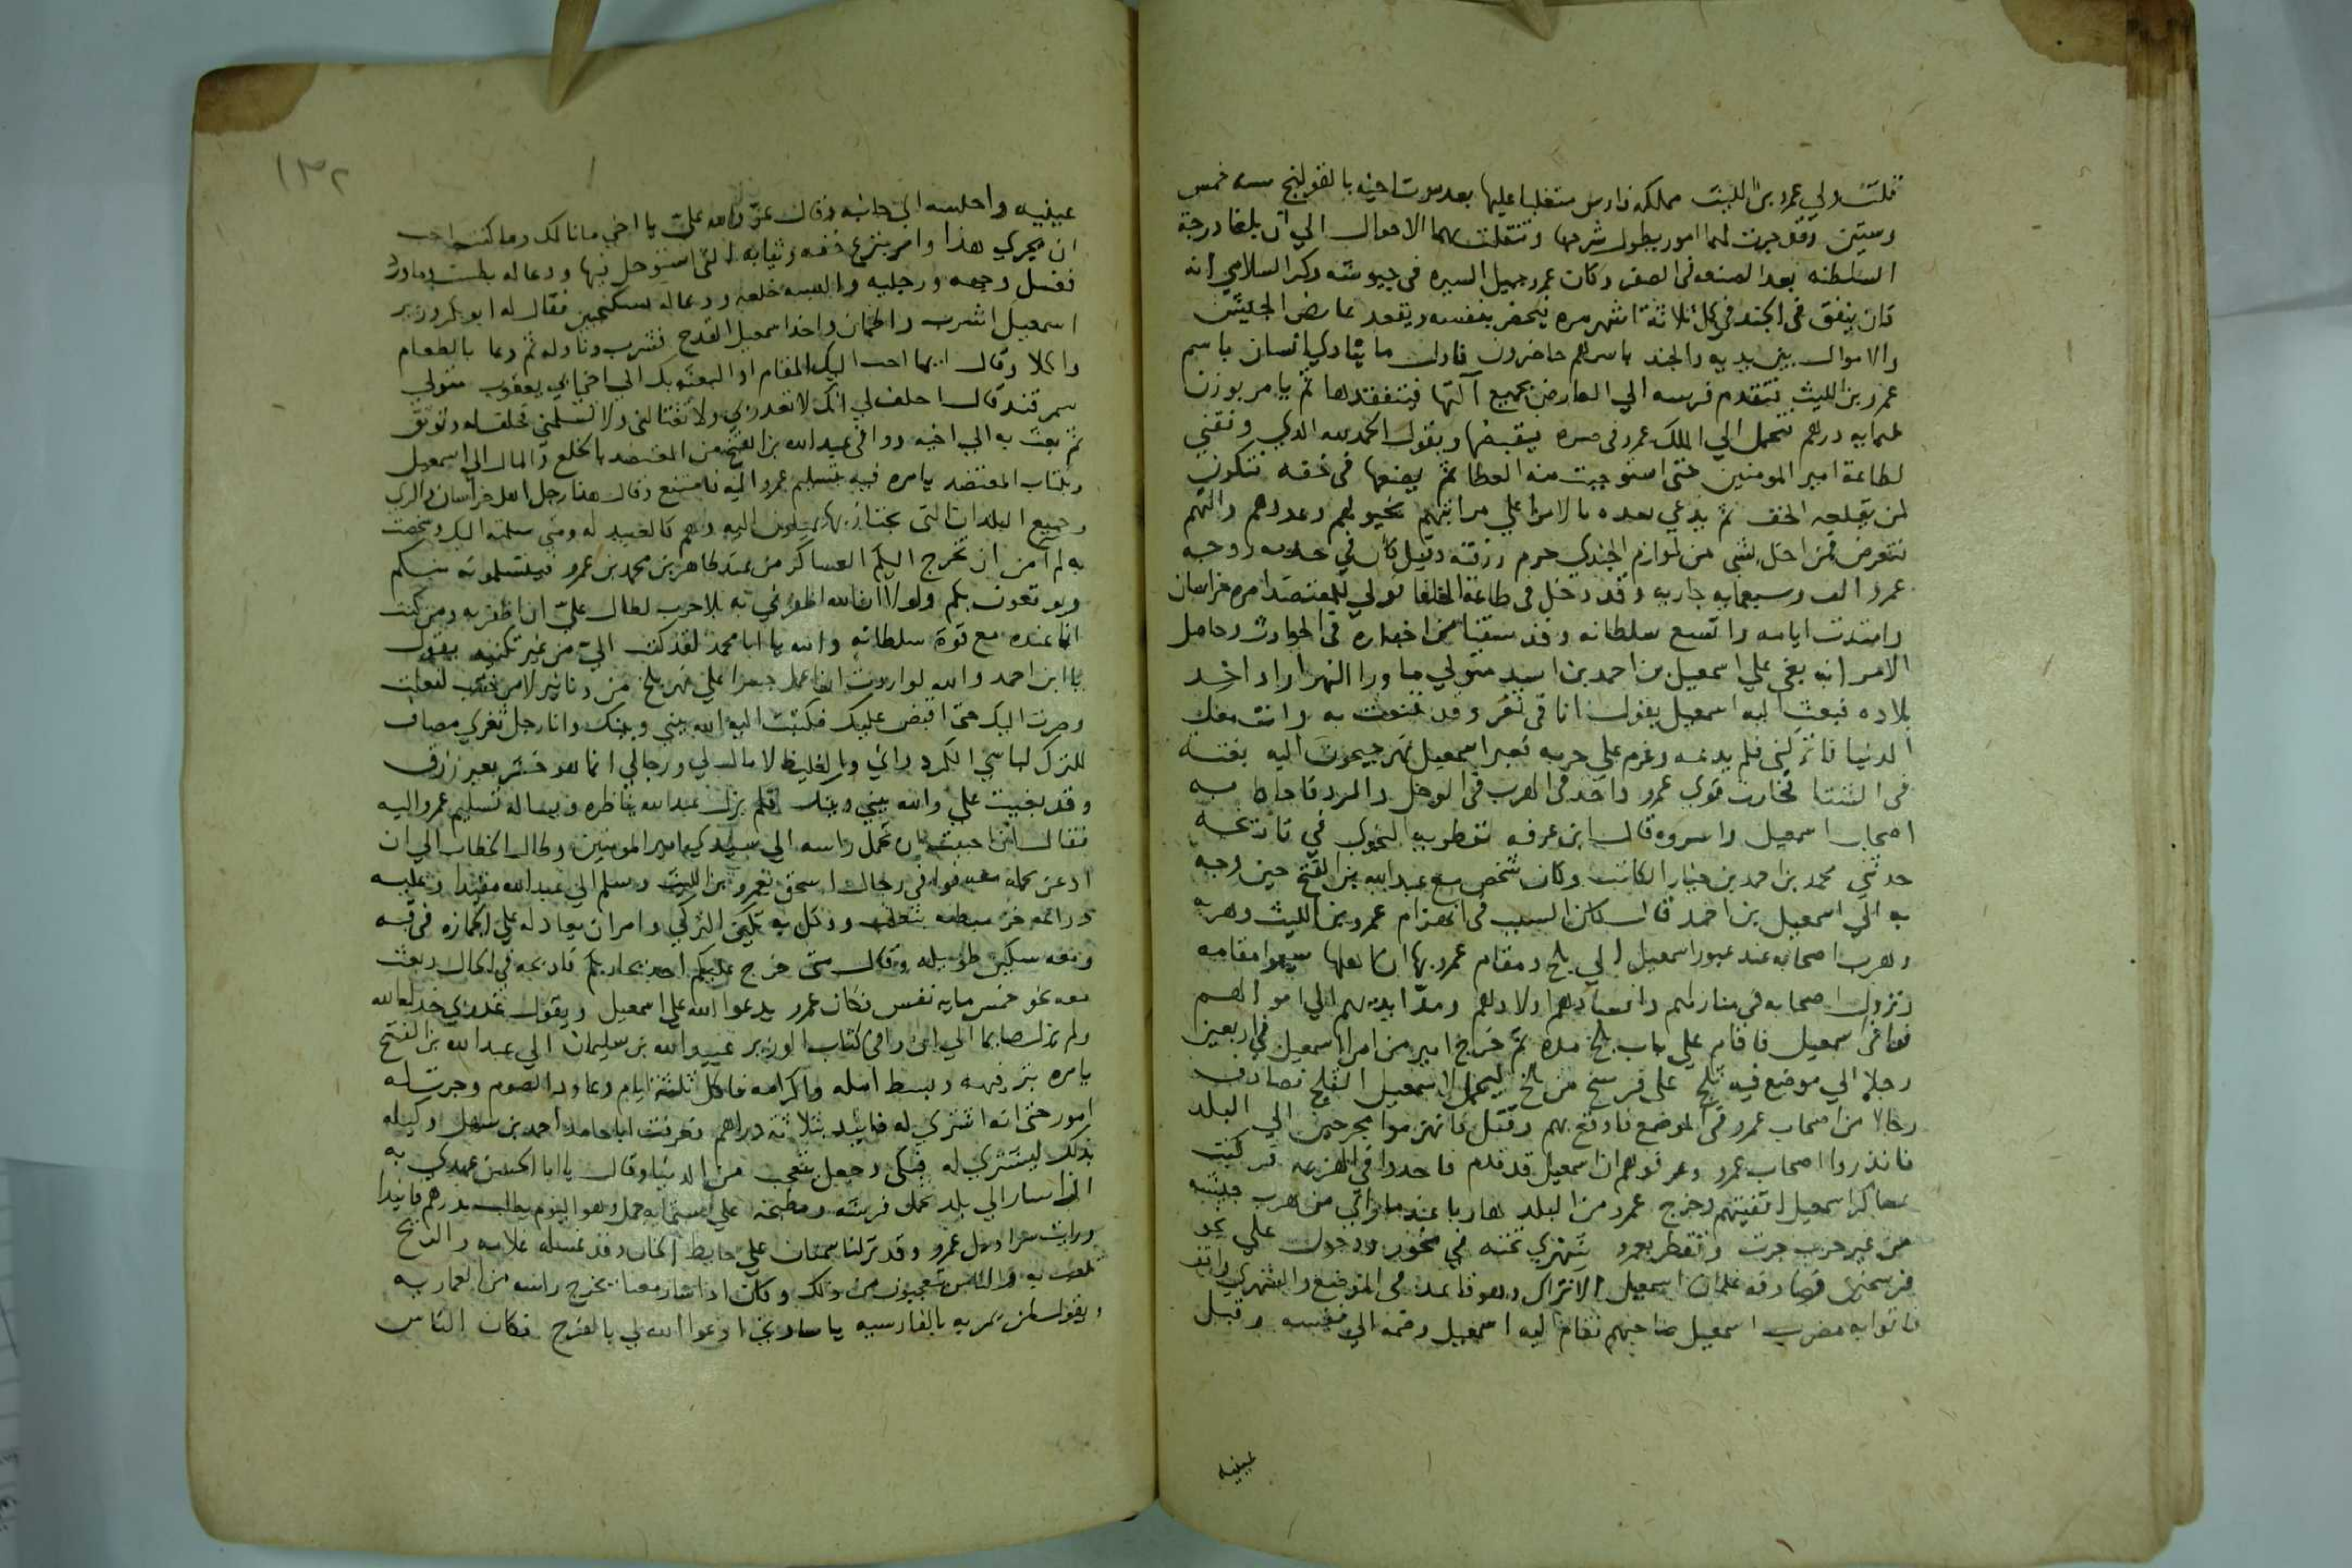 قلت ولي عمرو بن الليث مملكة فارس متغلبا عليها بعد موت اخيه بالقولنج سنه خمس
وستين وقد جرت لهما امور يطول شرحها وتنقلت بهما الاحوال الي ان بلغا درجة
السلطنه بعد الصنعه في الصفر وكان عمرو جميل السيره في جيوشه وذكر السلامي انه
كان ينفق في الجند في كل ثلاثة اشهر مره يحضر بنفسه ويقعد عارض الجيش
والاموال بين يديه والجند باسرهم حاضرون فاول ما ينادي انسان باسم
عمرو بن الليث فتقدم فرسه الي العارض بجميع آلتها فيتفقدها ثم يامر بوزن
ثلثمايه درهم فتحمل الي الملك عمرو في صره فيقبضها ويقول الحمد لله الذي وفقني
لطاعة امير المومنين حتى استوجبت منه العطا ثم يضعها في خفه فتكون
لمن يقلعه الخف ثم يدعي بعده بالامرا علي مراتبهم بخيولهم وعددهم وآلتهم
فتعرض فمن اخل بشى من لوازم الجندي حرم رزقه وقيل كان في خدمه زوجه
عمرو الف وسبعمايه جاريه وقد دخل في طاعة الخلفا فولي للمعتضد امره خراسان
وامتدت ايامه واتسع سلطانه وقد سقنا من اخباره في الحوادث وحاصل
الامر انه بغي علي اسمعيل بن احمد بن اسد متولي ماورا النهر اراد اخذ
بلاده فبعث اليه اسمعيل يقول انا في ثغر وقد قنعت به وانت معك
الدنيا فاتركني فلم يدعه وعزم علي حربه فعبر اسمعيل نهر جيحون اليه بغتة
في الشتا فخارت قوي عمرو واخذ في الهرب في الوحل والبرد فاحاط به
اصحاب اسمعيل واسروه قال ابن عرفه نفطويه النحوي في تاريخه
حدثني محمد بن احمد بن خيار الكاتب وكان شخص مع عبد الله بن الفتح حين وجه
به الي اسمعيل بن احمد قال كان السبب في انهزام عمرو بن الليث وهربه
وهرب اصحابه عند عبور اسمعيل الي بلخ ومقام عمرو بها ان اهلها سيموا مقامه
ونزول اصحابه في منازلهم وافسادهم اولادهم ومد ايديهم الي اموالهم
فوافى اسمعيل فاقام علي باب بلخ مده ثم خرج امير من امرا اسمعيل في اربعين
رجلا الي موضع فيه ثلج على فرسخ من بلخ ليحمل لاسمعيل الثلج فصادف
رجالا من اصحاب عمرو في الموضع فاوقع بهم وقتل فانهزموا مجرحين الي البلد
فانذروا اصحاب عمرو وعرفوهم ان اسمعيل قد قدم فاخذوا في الهزيمه فركبت
عساكر اسمعيل اقفيتهم وخرج عمرو من البلد هاربا عند ما رأي من هرب جيشه
من غير حرب جرت وتقطر بعمرو شهري تحته في نحو وحول علي نحو
فرسخين فصادفه غلمان اسمعيل الاتراك وهو قاعد في الموضع والشهري واقف
فاتوا به مضرب اسمعيل صاحبهم فقام اليه اسمعيل وضمه الي نفسه وقبل
عينيه
١٣٢
عينيه واجلسه الي جانبه وقال عز والله علي يا اخي ما نالك وما كنت احب
ان يجري هذا وامر بنزع خفه وثيابه التى استوحل فيها ودعا له بطست وماورد
فغسل وجهه ورجليه والبسه خلعه ودعا له بسكنجبين فقال له ابو بكر وزير
اسمعيل اشرب واطمان واخذ اسمعيل القدح فشرب وناوله ثم دعا بالطعام
واكلا وقال ايما احب اليك المقام او البعثه بك الي اخي ابي يعقوب متولي
سمرقند قال احلف لي انك لا تغدر بي ولا تغتالني ولا تسلمني فحلف له وتوثق
ثم بعث به الي اخيه ووافى عبد الله بن الفتح من المعتضد بالخلع والمال الي اسمعيل
وبكتاب المعتضد يامره فيه بتسليم عمرو اليه فامتنع وقال هذا رجل اهل خراسان والري
وجميع البلدان التي يجتاز بها يميلون اليه وهم كالعبيد له ومتى سلمته اليك وشخصت
به لم امن ان تخرج اليكم العساكر من عند طاهر بن محمد بن عمرو فيتسلمونه منكم
ويوقعون بكم ولولا ان الله اظفرني به بلا حرب لطال علي ان اظفر به ومن كنت
انا عنده مع قوة سلطانه والله يا ابا محمد لقد كتب الي من غير تكنيه يقول
يا ابن احمد والله لو اردت ان اعمل جسرا علي نهر بلخ من دنانير لا من خشب لفعلت
وصرت اليك حتى اقبض عليك فكتبت اليه الله بيني وبينك وانا رجل ثغري مصاف
للترك لباسي الكردواني والغليظ لا مال لي ورجالي انما هو حشر بغير رزق
وقد بغيت علي والله بيني وبينك فلم يزل عبد الله يناظره ويساله تسليم عمرو اليه
فقال ان احببت ان تحمل راسه الي سيدي امير المومنين وطال الخطاب الي ان
اذعن بحمله فوافى رجال اسحق بعمرو بن الليث وسلم الي عبد الله مقيدا وعليه
دراعه خز مبطنه بثعلب ووكل به تكين التركي وامر ان يعادله علي الجمازه في قبه
ومعه سكين طويله وقال متى خرج عليكم احد يحاربكم فاذبحه في الحال وبعث
معه نحو خمس مايه نفس فكان عمرو يدعوا الله علي اسمعيل ويقول غدر بي خذله الله
ولم يزل صايما الي ان وافى كتاب الوزير عبيد الله بن سليمان الي عبد الله بن الفتح
يامره بترفيهه وببسط امله واكرامه فاكل ثلثة ايام وعاود الصوم وجرت له
امور حتى انه اشترى له فانيد بثلاثه دراهم فعرفت ابا حامد احمد بن سهل وكيله
بذلك ليشتري له فبكى وجعل يتعجب من الدنيا وقال يا ابا الحسن عهدي به
اذا سار الي بلد تحمل فرشه ومطبخه علي ستمايه جمل وهو اليوم يطلب بدرهم فانيدا
ورايت سراويل عمرو وقد نزلنا سمنان علي حايط الخان وقد غسله غلامه والريح
تلعب به والناس يتعجبون من ذلك وكان اذا سار معنا يخرج راسه من العماريه
ويقول لمن يمر به بالفارسيه يا سادتي ادعوا الله لي بالفرج فكان الناس